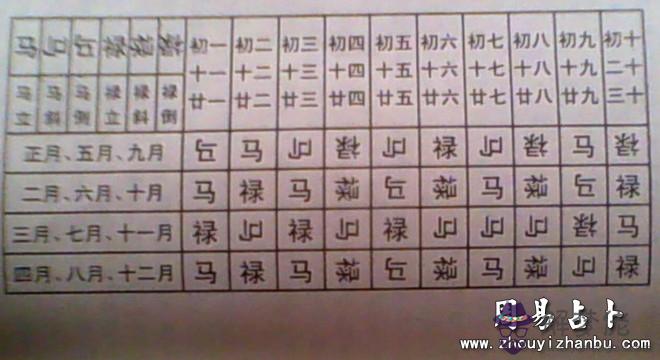 马立 马斜 马倒 禄立 禄斜 禄倒
初一 初二 初三 初四 初五 初六 初七 初八 初九 初十
十一 十二 十三 十四 十五 十六 十七 十八 十九 二十
廿一 廿二 廿三 廿四 廿五 廿六 廿七 廿八 廿九 三十
正月、五月、九月 马 马 马 禄 马 禄 马 禄 马 禄
二月、六月、十月 马 禄 马 禄 马 禄 马 禄 马 禄
三月、七月、十一月 禄 马 禄 马 禄 马 马 马 禄 马
四月、八月、十二月 马 禄 马 禄 马 禄 马 禄 马 禄
周易占卜
www.zhouyizhanbu.com